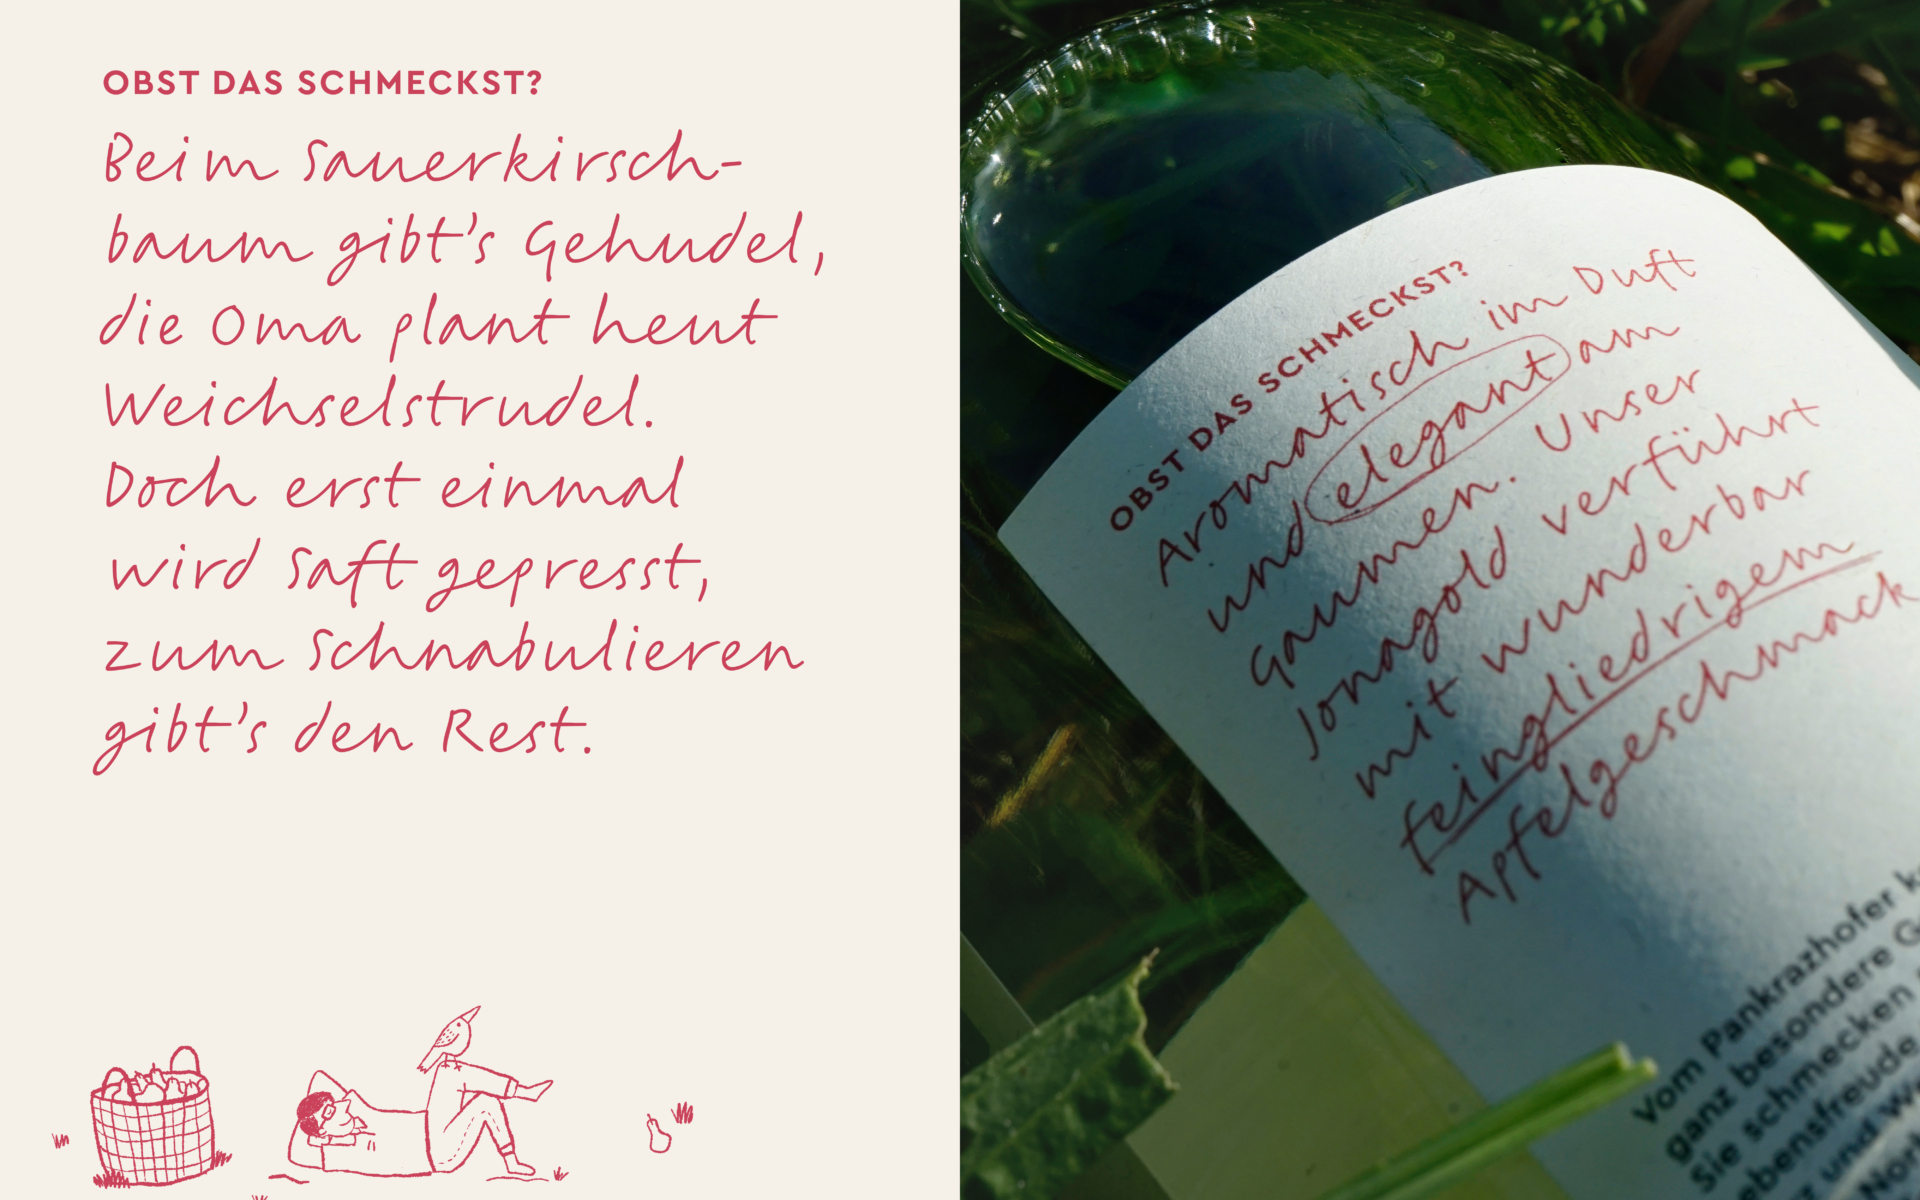 OBST DAS SCHMECKST?
Beim Sauerkirsch-
baum gibt's Gehudel,
die Oma plant heut
Weichselstrudel.
Doch erst einmal
wird Saft gepresst,
zum Schnabulieren
gibt's den Rest.
OBST DAS SCHMECKST?
Aromatisch im Duft
und elegant am
Gaumen. Unser
Jonagold verführt
mit wunderbar
feingliedrigem
Apfelgeschmack
Vom Pankrazhofer
ganz besondere
Sie schmecken
und